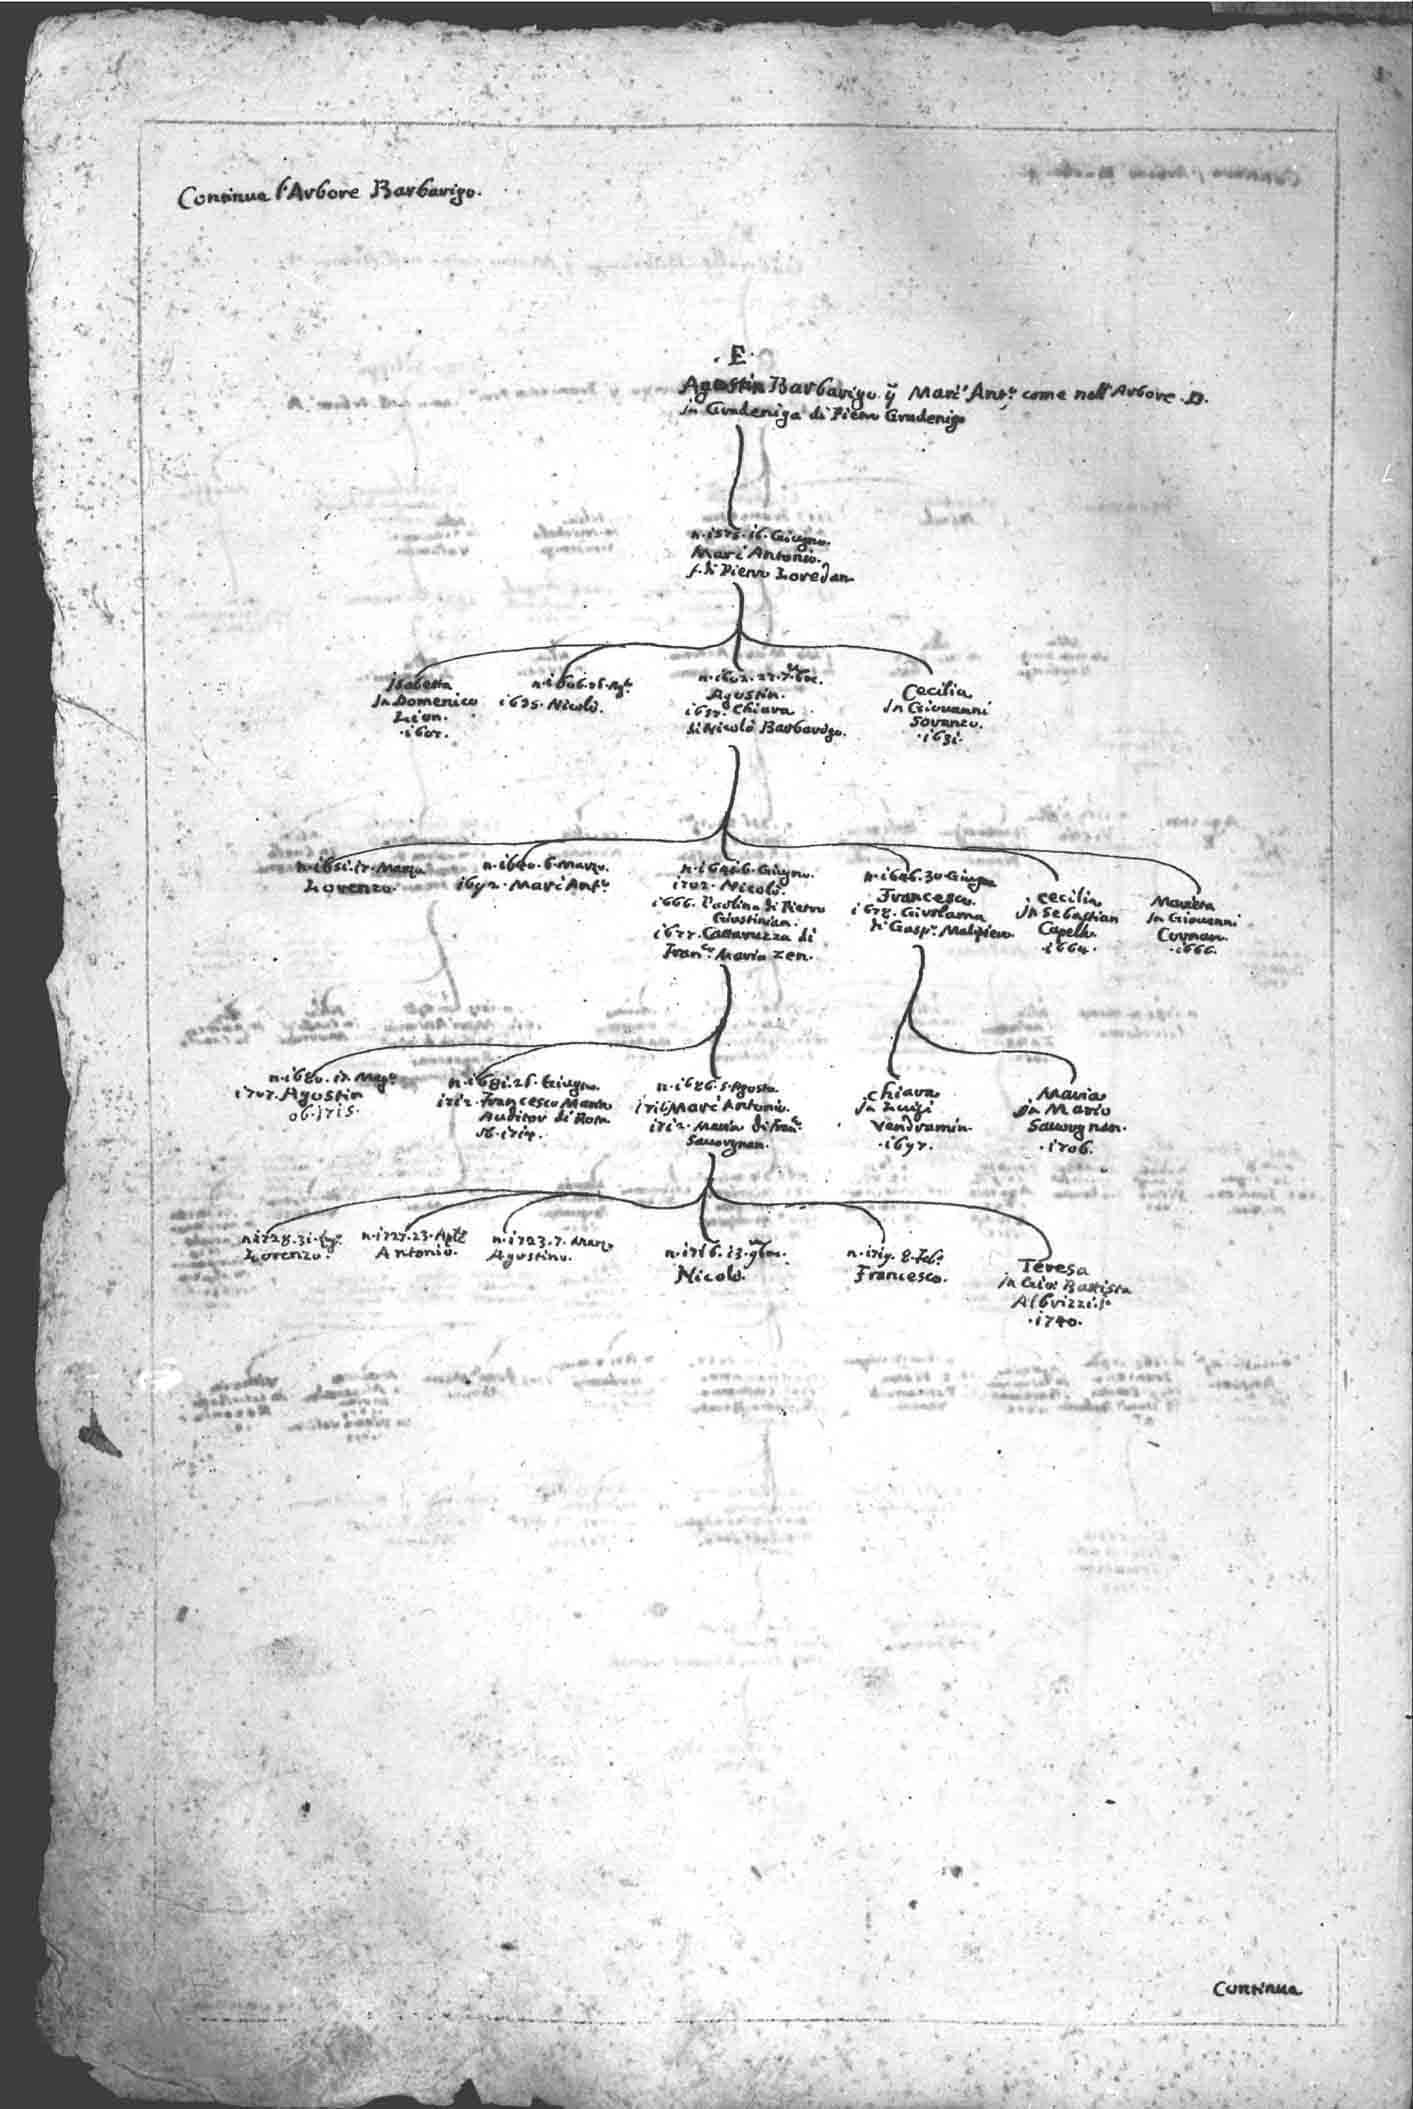 Continua l'Arbore Barbarigo.
. E .
Agostin Barbarigo q̃ Marc' Ant.º come nell'Arbore .D.
in Gradeniga di Piero Gradenigo
n. 1575. 16. Giugno.
Marc' Antonio.
f. di Piero Loredan.
Isabetta
In Domenico
Lion.
n. 1606.
1635. Nicolò.
Agustin.
Chiara
di Nicolò Barbarigo.
Cecilia
In Giovanni
Soranzo.
.1631.
n. 1651. 17. Marzo
Lorenzo.
n. 1640. 6. Marzo.
1692. Marc' Ant.º
6. Giugno.
1702. Nicolò.
1666. Paolina di Pietro
Giustinian.
1677. Cattaruzza di
Fran.co Maria Zen.
n. 1646. 30. Giugno
Francesco.
1678. Girolama
di Gasp.º Malipiero.
Cecilia
In Sebastian
Capello
.1664.
In Giovanni
Cornaro.
.1666.
n. 1680. 17. Mag.º
1707. Agustin
ob. 1715.
n. 1681. 26. Giugno.
1712. Francesco Maria
Auditor di Rota
ob. 1714.
n. 1686. 5. Agosto.
1716. Marc' Antonio.
1712. Maria di Fran.co
Savorgnan.
Chiara
In Luigi
Vendramin.
.1697.
Maria
In Mario
Savorgnan.
.1706.
n. 1728. 31.
Lorenzo.
n. 1727. 23. Aple
Antonio.
n. 1723. 7. Marzo
Agustino.
n. 1716. 13. 9bre.
Nicolò.
n. 1719. 8. Feb.º
Francesco.
Teresa
in Gio: Battista
Albrizzi.
.1740.
Continua